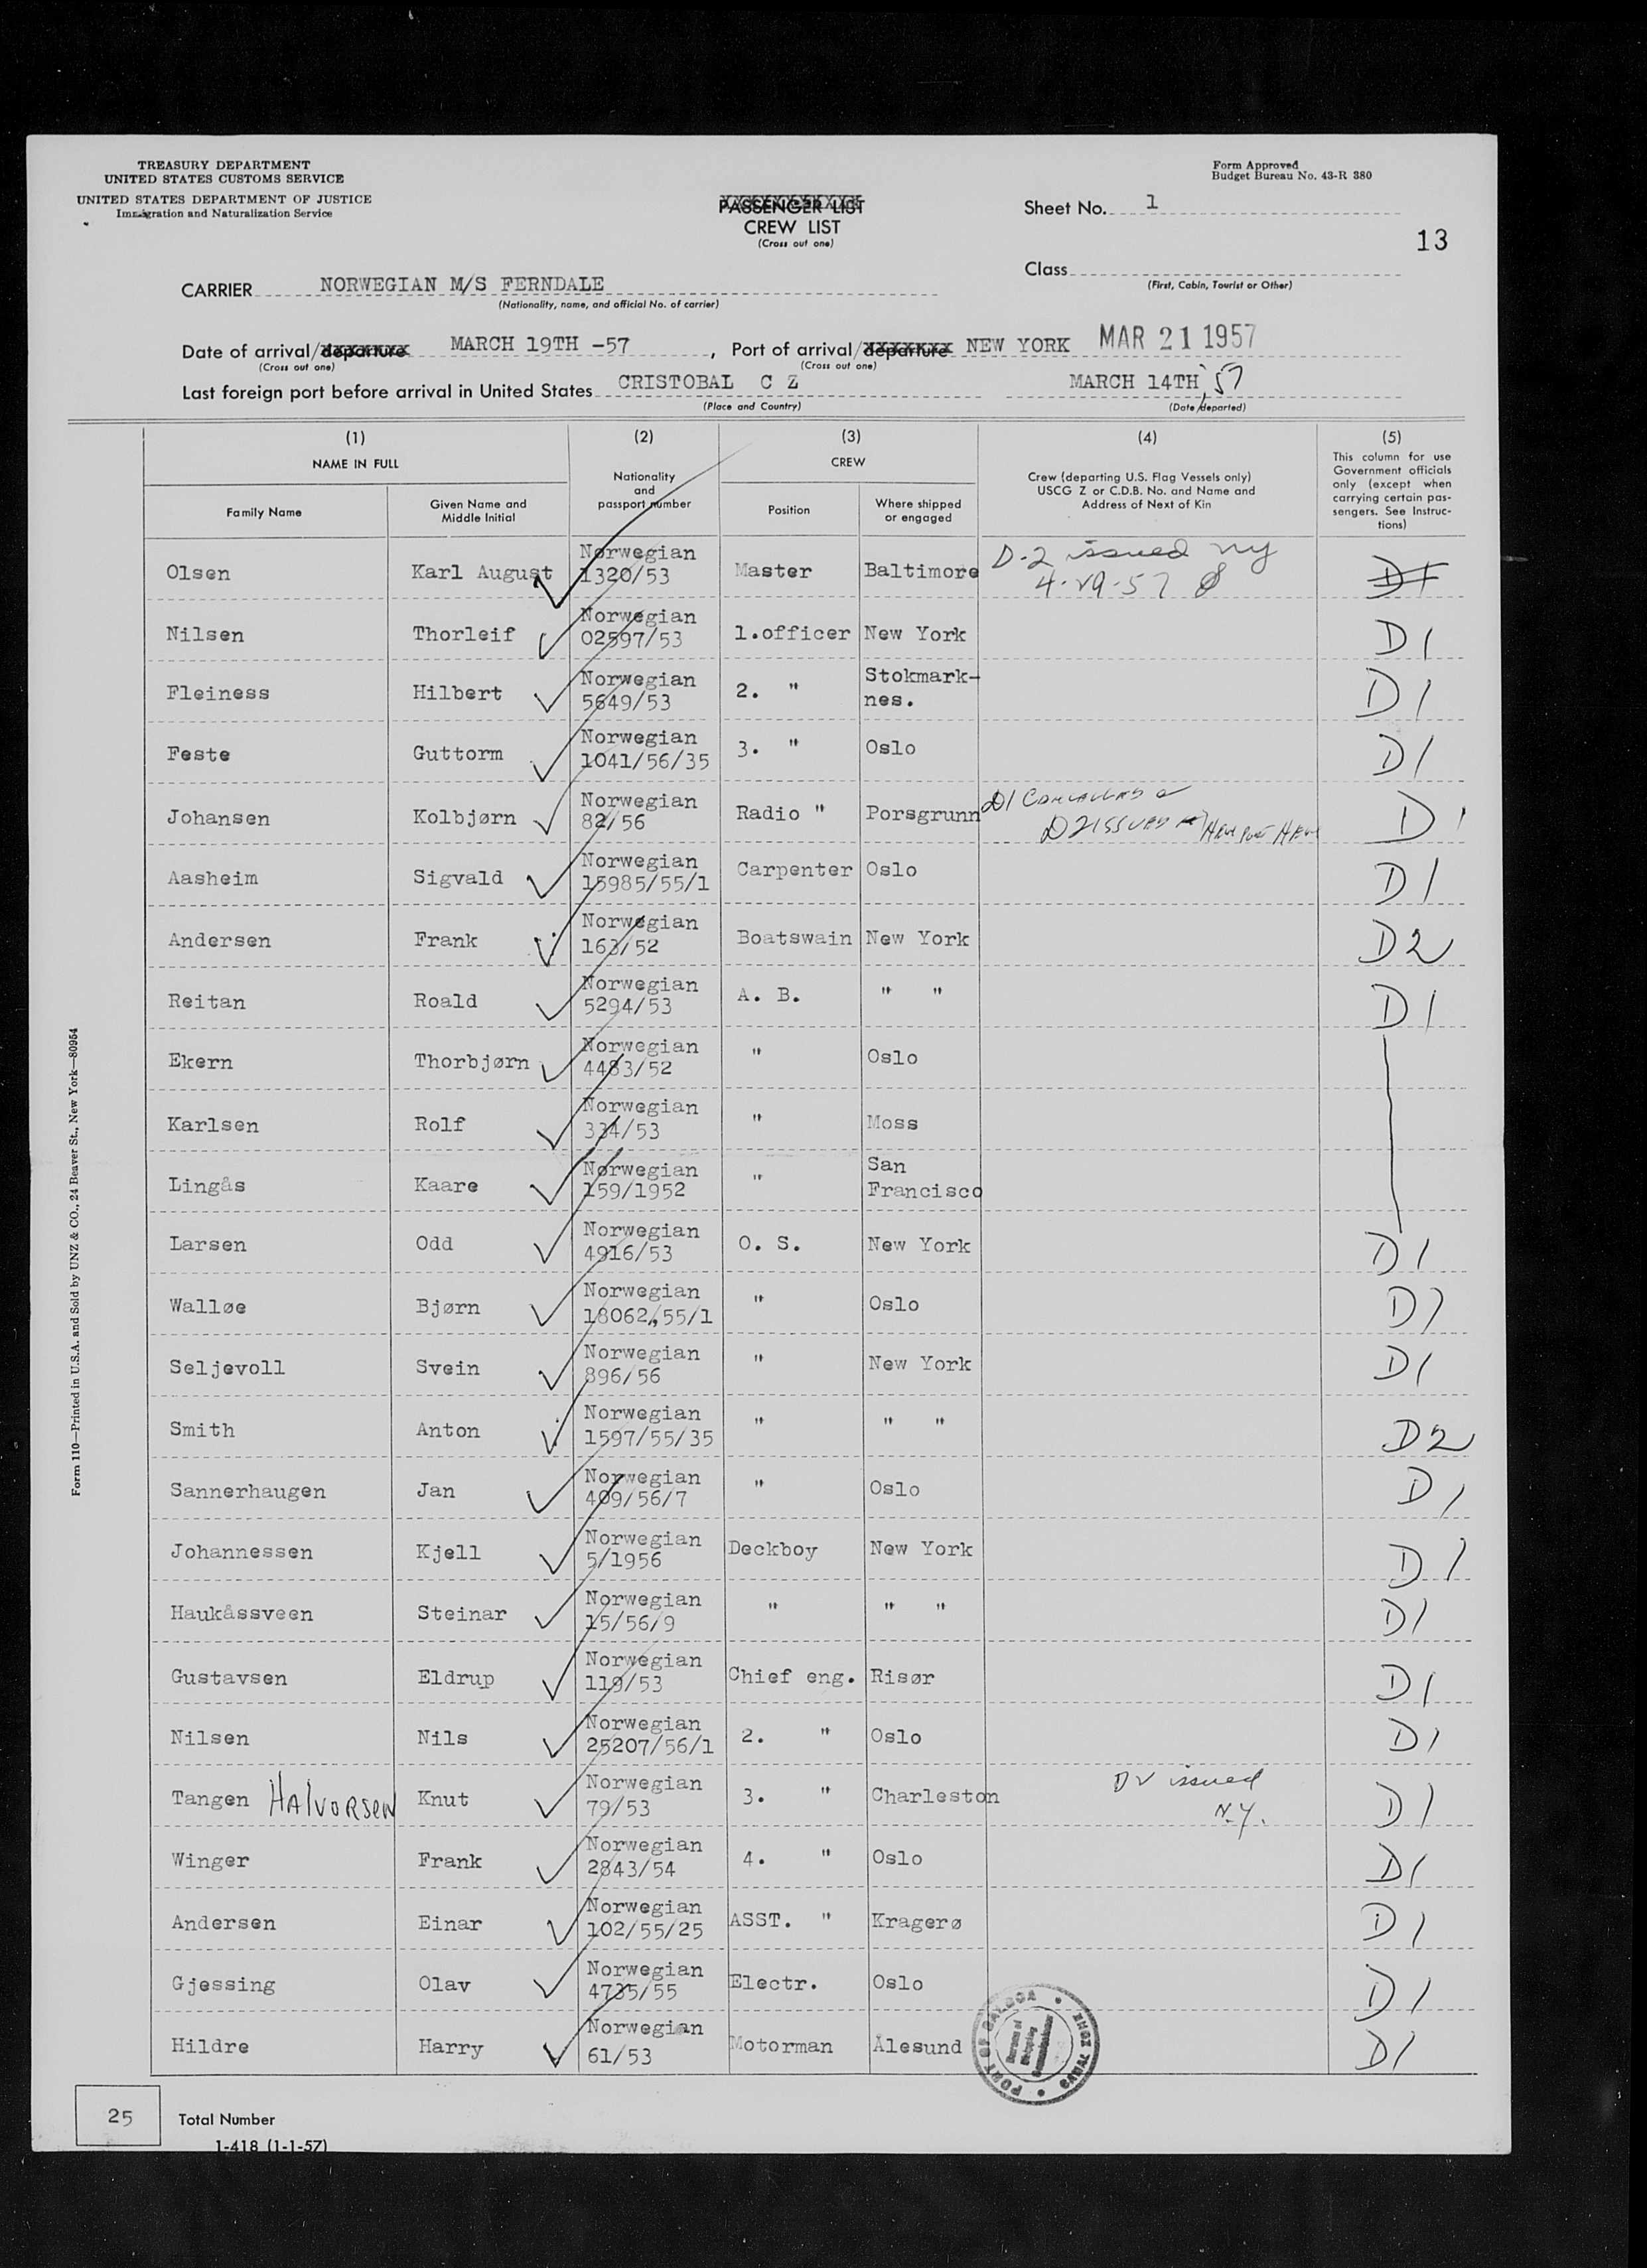 TREASURY DEPARTMENT
UNITED STATES CUSTOMS SERVICE
UNITED STATES DEPARTMENT OF JUSTICE
Immigration and Naturalization Service
Form Approved
Budget Bureau No. 43-R 380
PASSENGER LIST
CREW LIST
(Cross out one)
Sheet No. 1
13
Class
(First, Cabin, Tourist or Other)
CARRIER NORWEGIAN M/S FERNDALE
(Nationality, name, and official No. of carrier)
Date of arrival/departure MARCH 19TH -57, Port of arrival/departure NEW YORK MAR 21 1957
(Cross out one) (Cross out one)
Last foreign port before arrival in United States CRISTOBAL C Z MARCH 14TH 57
(Place and Country) (Date departed)
(1) (2) (3) (4) (5)
NAME IN FULL
Family Name
Given Name and Middle Initial
Nationality and passport number
CREW
Position
Where shipped or engaged
Crew (departing U.S. Flag Vessels only)
USCG Z or C.D.B. No. and Name and
Address of Next of Kin
This column for use
Government officials
only (except when
carrying certain pas-
sengers. See Instruc-
tions)
Olsen Karl August Norwegian 1320/53 Master Baltimore D-2 issued NY 4-29-57 D1
Nilsen Thorleif Norwegian 02597/53 1.officer New York D1
Fleiness Hilbert Norwegian 5649/53 2. " Stokmark-nes. D1
Feste Guttorm Norwegian 1041/56/35 3. " Oslo D1
Johansen Kolbjørn Norwegian 82/56 Radio " Porsgrunn D1 D2 ISSUED D1
Aasheim Sigvald Norwegian 15985/55/1 Carpenter Oslo D1
Andersen Frank Norwegian 163/52 Boatswain New York D2
Reitan Roald Norwegian 5294/53 A. B. " " D1
Ekern Thorbjørn Norwegian 4483/52 " Oslo
Karlsen Rolf Norwegian 334/53 " Moss
Lingås Kaare Norwegian 159/1952 " San Francisco
Larsen Odd Norwegian 4916/53 O. S. New York D1
Walløe Bjørn Norwegian 18062,55/1 " Oslo D1
Seljevoll Svein Norwegian 896/56 " New York D1
Smith Anton Norwegian 1597/55/35 " " " D2
Sannerhaugen Jan Norwegian 409/56/7 " Oslo D1
Johannessen Kjell Norwegian 5/1956 Deckboy New York D1
Haukåssveen Steinar Norwegian 15/56/9 " " " D1
Gustavsen Eldrup Norwegian 119/53 Chief eng. Risør D1
Nilsen Nils Norwegian 25207/56/1 2. " Oslo D1
Tangen HAlvorsen Knut Norwegian 79/53 3. " Charleston D2 issued N.Y. D1
Winger Frank Norwegian 2843/54 4. " Oslo D1
Andersen Einar Norwegian 102/55/25 ASST. " Kragerø D1
Gjessing Olav Norwegian 4735/55 Electr. Oslo D1
Hildre Harry Norwegian 61/53 Motorman Ålesund D1
PORT OF BALBOA CANAL ZONE
25 Total Number
I-418 (1-1-57)
Form 110—Printed in U.S.A. and Sold by UNZ & CO., 24 Beaver St., New York—80954